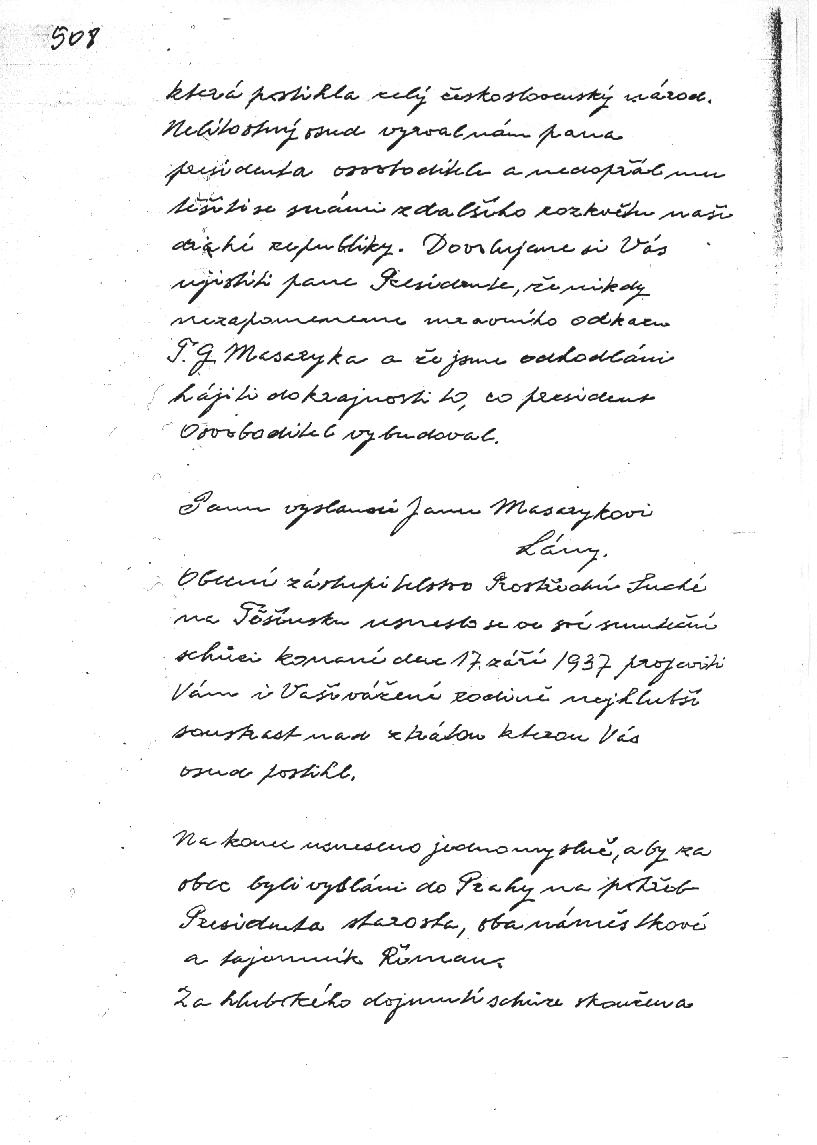 508
která postihla celý československý národ.
Nelítostný osud vyrval nám pana
presidenta osvoboditele a nedopřál mu
těšiti se s námi z dalšího rozkvětu naší
drahé republiky. Dovolujeme si Vás
ujistiti pane Presidente, že nikdy
nezapomeneme mravního odkazu
T. G. Masaryka a že jsme odhodláni
hájiti do krajnosti to, co president
Osvoboditel vybudoval.
Panu vyslanci Janu Masarykovi
Lány.
Obecní zástupitelstvo Prostřední Suché
na Těšínsku usneslo se ve své smuteční
schůzi konané dne 17. září 1937 projeviti
Vám i Vaší vážené rodině nejhlubší
soustrast nad ztrátou kterou Vás
osud postihl.
Na konec usneseno jednomyslně, aby za
obec byli vysláni do Prahy na pohřeb
Presidenta starosta, oba náměstkové
a tajemník Röman.
Za hlubokého dojmutí schůze skončena